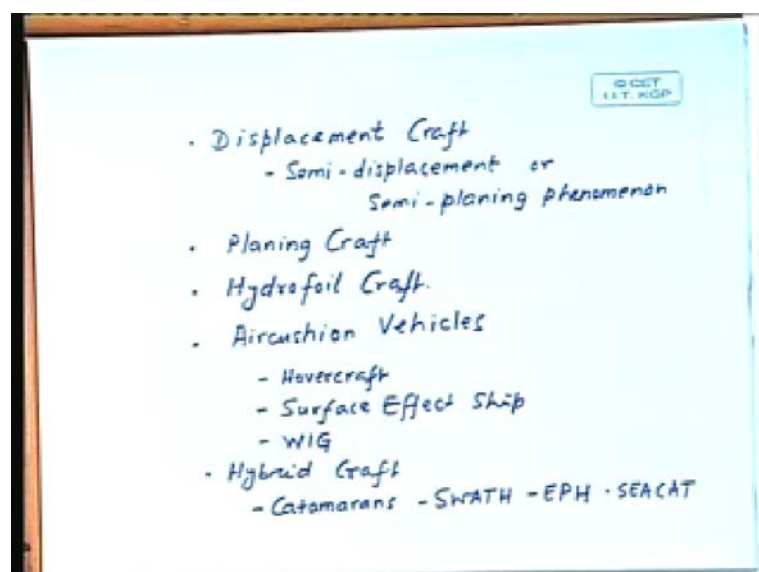 © CET
I.I.T. KGP
· Displacement Craft
- Semi-displacement or
Semi-planing phenomenon
· Planing Craft
· Hydrofoil Craft.
· Aircushion Vehicles
- Hovercraft
- Surface Effect Ship
- WIG
· Hybrid Craft
- Catamarans - SWATH - EPH · SEACAT